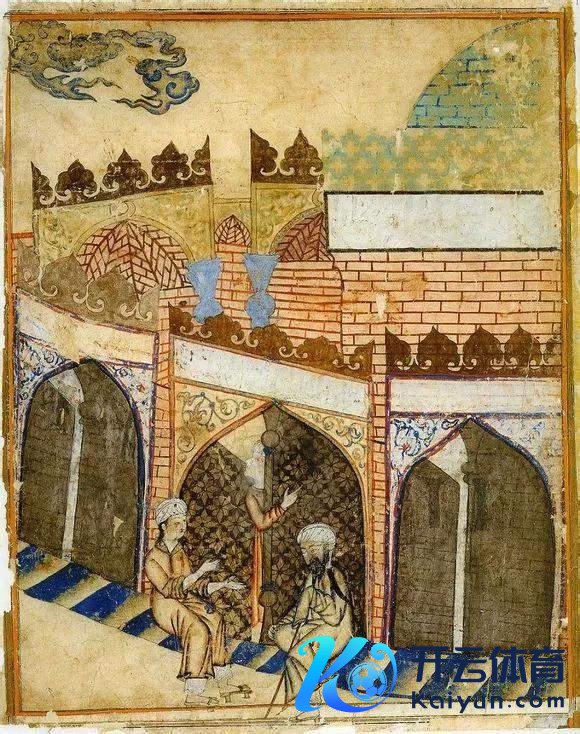 开云体育
Kaiyun.com